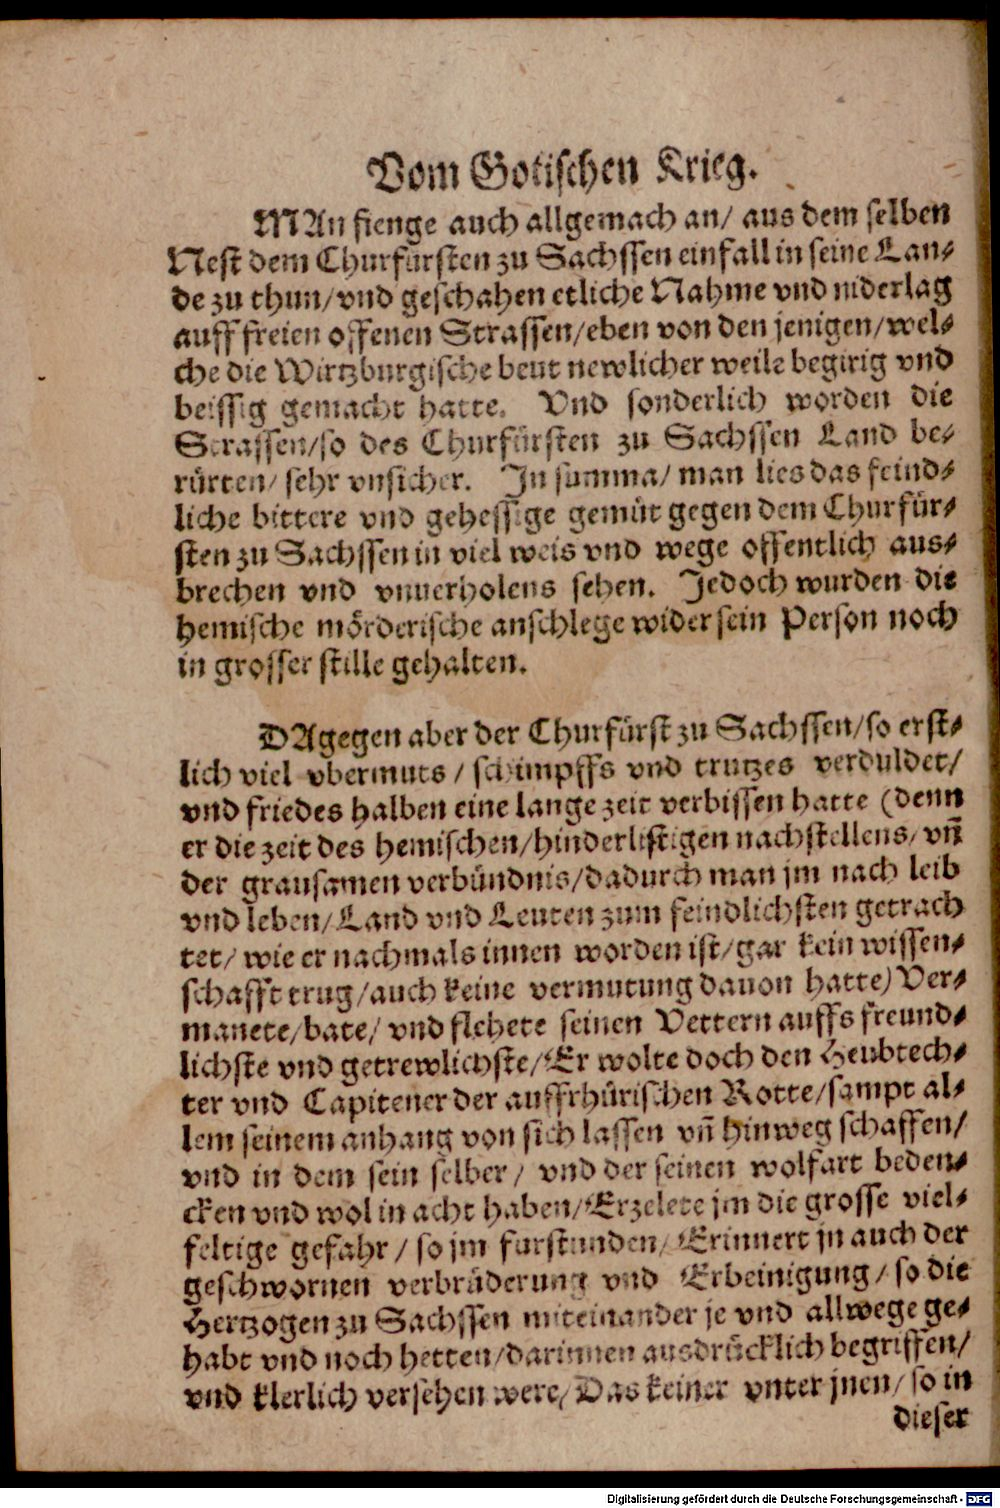 Vom Gotischen Krieg.
MAn fienge auch allgemach an/ aus dem selben
Nest dem Churfürsten zu Sachssen einfall in seine Lan-
de zu thun/ vnd geschahen etliche Nahme vnd niderlag
auff freien offenen Strassen/ eben von den jenigen/ wel-
che die Wirtzburgische beut newlicher weile begirig vnd
beissig gemacht hatte. Vnd sonderlich worden die
Strassen/ so des Churfürsten zu Sachssen Land be-
rürten/ sehr vnsicher. In summa/ man lies das feind-
liche bittere vnd gehessige gemüt gegen dem Churfür-
sten zu Sachssen in viel weis vnd wege offentlich aus-
brechen vnd vnuerholens sehen. Jedoch wurden die
hemische mörderische anschlege wider sein Person noch
in grosser stille gehalten.
DAgegen aber der Churfürst zu Sachssen/ so erst-
lich viel vbermuts / schimpffs vnd trutzes verduldet/
vnd friedes halben eine lange zeit verbissen hatte (denn
er die zeit des hemischen/ hinderlistigen nachstellens/ vñ
der grausamen verbündnis/ dadurch man jm nach leib
vnd leben/ Land vnd Leuten zum feindlichsten getrach
tet/ wie er nachmals innen worden ist/ gar kein wissen-
schafft trug/ auch keine vermutung dauon hatte) Ver-
manete/ bate/ vnd flehete seinen Vettern auffs freund-
lichste vnd getrewlichste/ Er wolte doch den Heubtech-
ter vnd Capitener der auffrhürischen Rotte/ sampt al-
lem seinem anhang von sich lassen vñ hinweg schaffen/
vnd in dem sein selber / vnd der seinen wolfart beden-
cken vnd wol in acht haben/ Erzelete jm die grosse viel-
feltige gefahr / so jm fürstunden/ Erinnert jn auch der
geschwornen verbrüderung vnd Erbeinigung / so die
Hertzogen zu Sachssen miteinander je vnd allwege ge-
habt vnd noch hetten/ darinnen ausdrücklich begriffen/
vnd klerlich versehen were/ Das keiner vnter jnen/ so in
dieser
Digitalisierung gefördert durch die Deutsche Forschungsgemeinschaft - DFG